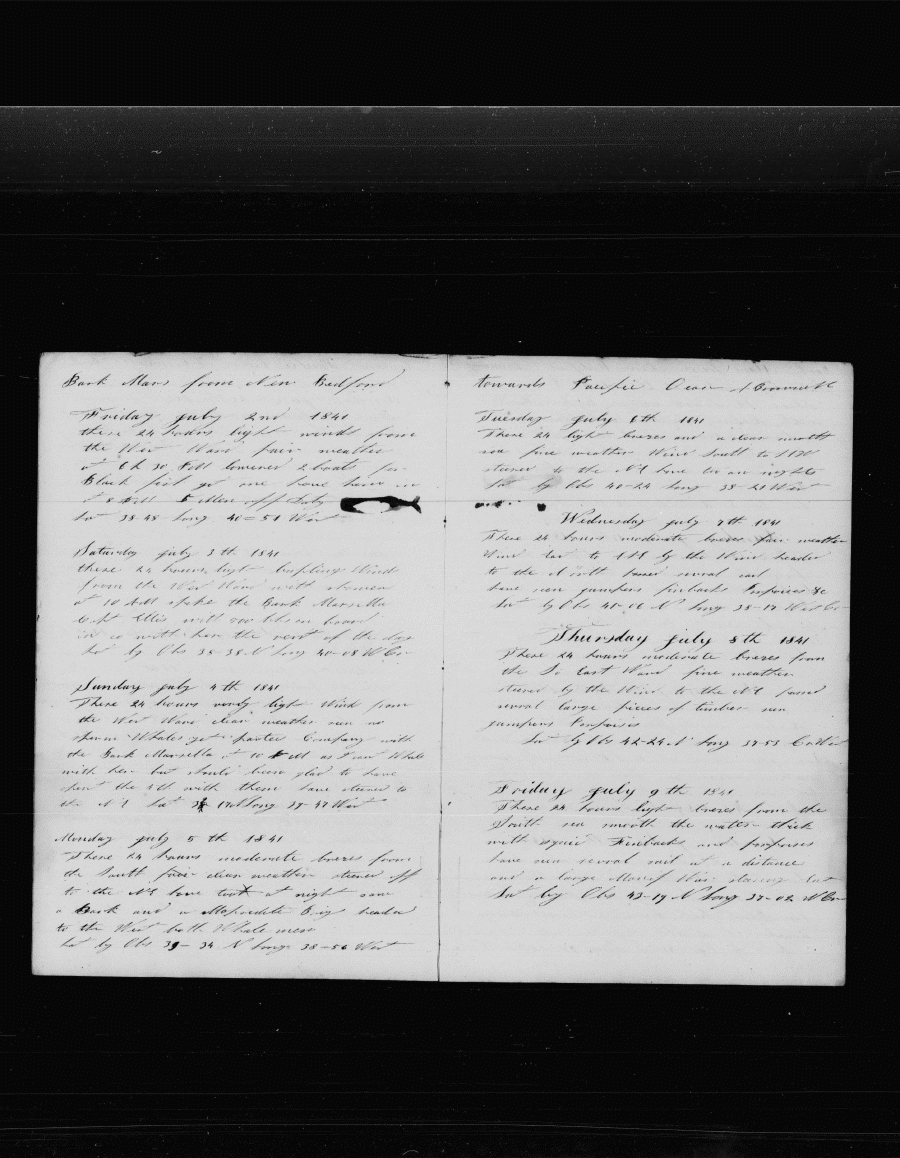 Bark Mars from New Bedford
Friday July 2nd 1841
these 24 hours light winds from
the West Ward fair weather
at 6 h 30 lowered 2 boats for
Black fish got one
at 8 5 Men off duty
Lat 38-48 Long 40=51 West
Saturday July 3th 1841
these 24 hours light Wind
from the West Ward with
at 10 AM spoke the Bark Marsella
Capt Ellis with on board
in co with her the rest of the day
Lat by Obs 38-38 N Long 40-08 W
Sunday July 4th 1841
These 24 hours light Wind from
the West Ward clear weather seen no
sperm Whales got parted Company with
the Bark Marsella at 10 M
with her but should been glad to have
spent the 4th with them have steered to
the NE Lat Long West
Monday July 5th 1841
These 24 hours moderate brezes from
the South fair clear weather steered off
to the NE have at night saw
a Bark and a Brig headed
to the West both Whale men
Lat by Obs 39-34 N Long 38-56 West
towards Pacific Ocean
Tuesday July 6th 1841
These 24 light brezes and a clear smooth
sea fine weather Wind South to
steered to the NE hove too on nights
Lat by Obs 40-24 Long 38-21 West
Wednesday July 7th 1841
These 24 hours moderate brezes fair weather
Wind East to by the Wind headed
to the North several sail
have seen jumpers finbacks Porpoises &c
Lat by Obs N Long 38-17 West
Thursday July 8th 1841
These 24 hours moderate brezes from
the So East Ward fine weather
steered by the Wind to the NE passed
several large pieces of timber seen
jumpers Porpoises
Lat by Obs 42-24 N Long 37-53
Friday July 9th 1841
These 24 hours light brezes from the
South sea smooth the water thick
with squid Finbacks and porpoises
have seen several sail at a distance
and a large steering East
Lat by Obs 43-19 N Long 37-02 W